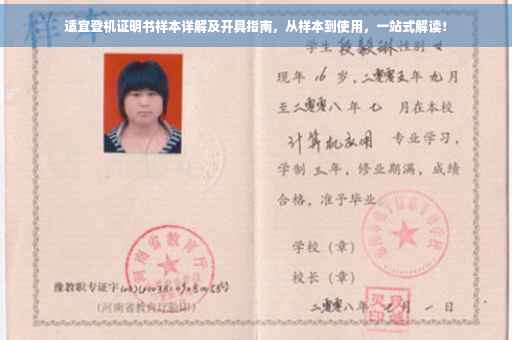 适宜登机证明书样本详解及开具指南，从样本到使用，一站式解读！
样本
学生 段毅琳 性别 女
现年 16 岁，二零零五年 九月
至二零零八年 七 月在本校
计算机应用 专业学习，
学制 三年，修业期满，成绩
合格，准予毕业
学校（章）
校长（章）
河南省教育厅
豫教职专证字
（河南省教育厅验印）
二零零八年 七月 一日